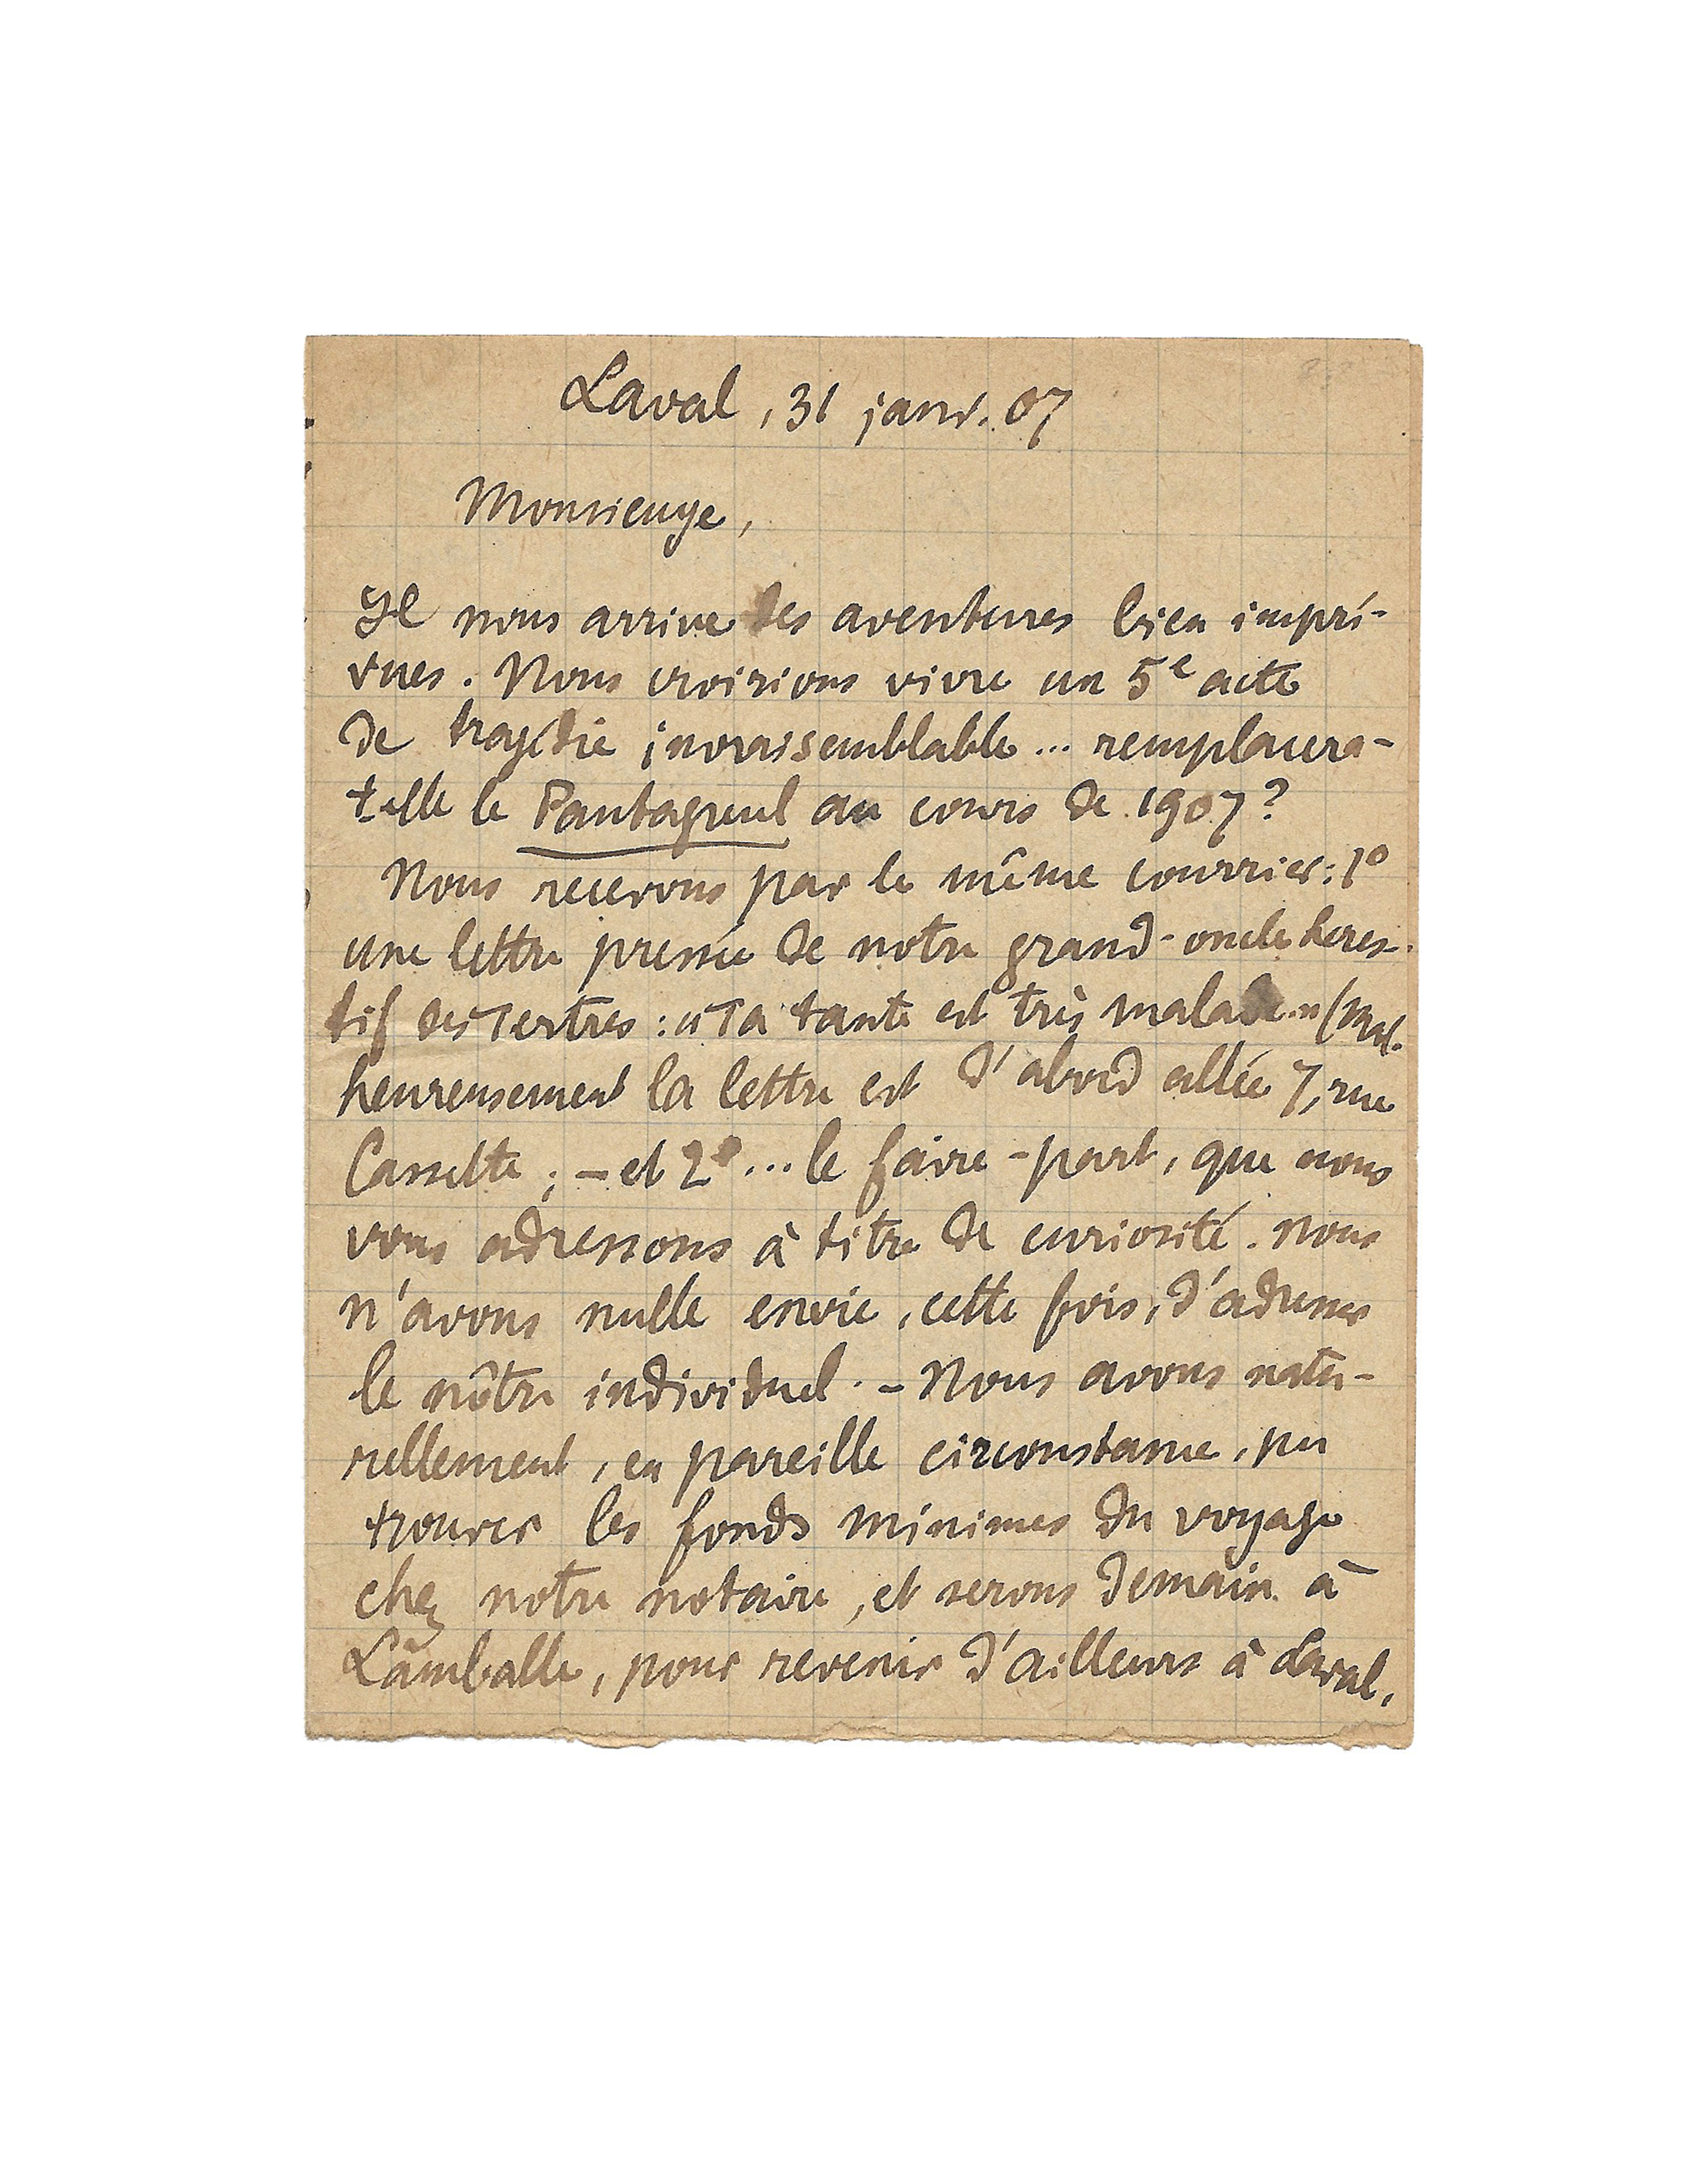 Laval, 31 janv. 07
Monsieuye,
Il nous arrive des aventures bien impré-
vues. Nous croirions vivre un 5e acte
de tragédie invraissemblable... remplacera-
t-elle le Pantagruel au cours de 1907?
Nous recevons par le même courrier: 1º
une lettre pressée de notre grand-oncle
tif des Tertres: « Ta tante est très malade.» (Mal-
heureusement la lettre est d'abord allée 7, rue
Cassette; - et 2º... le faire-part, que nous
vous adressons à titre de curiosité. Nous
n'avons nulle envie, cette fois, d'adresser
le nôtre individuel. - Nous avons natu-
rellement, en pareille circonstance, pu
trouver les fonds minimes du voyage
chez notre notaire, et serons demain à
Lamballe, pour revenir d'ailleurs à Laval,